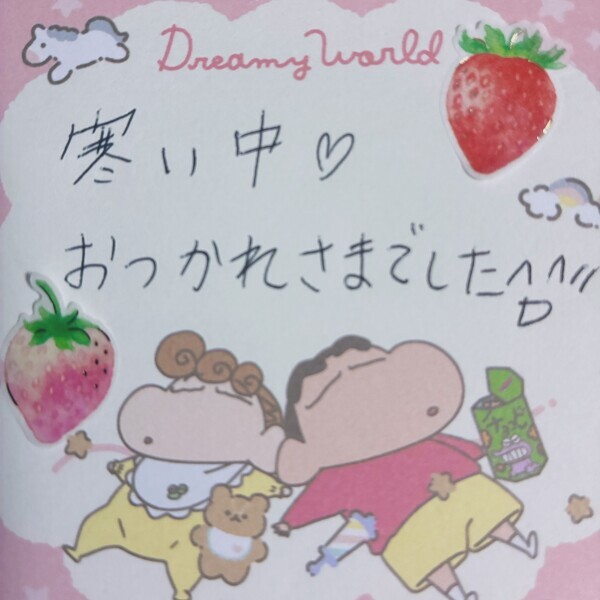 Dreamy World
寒い中♡
おつかれさまでした^ᗜ^〃
チョコビ